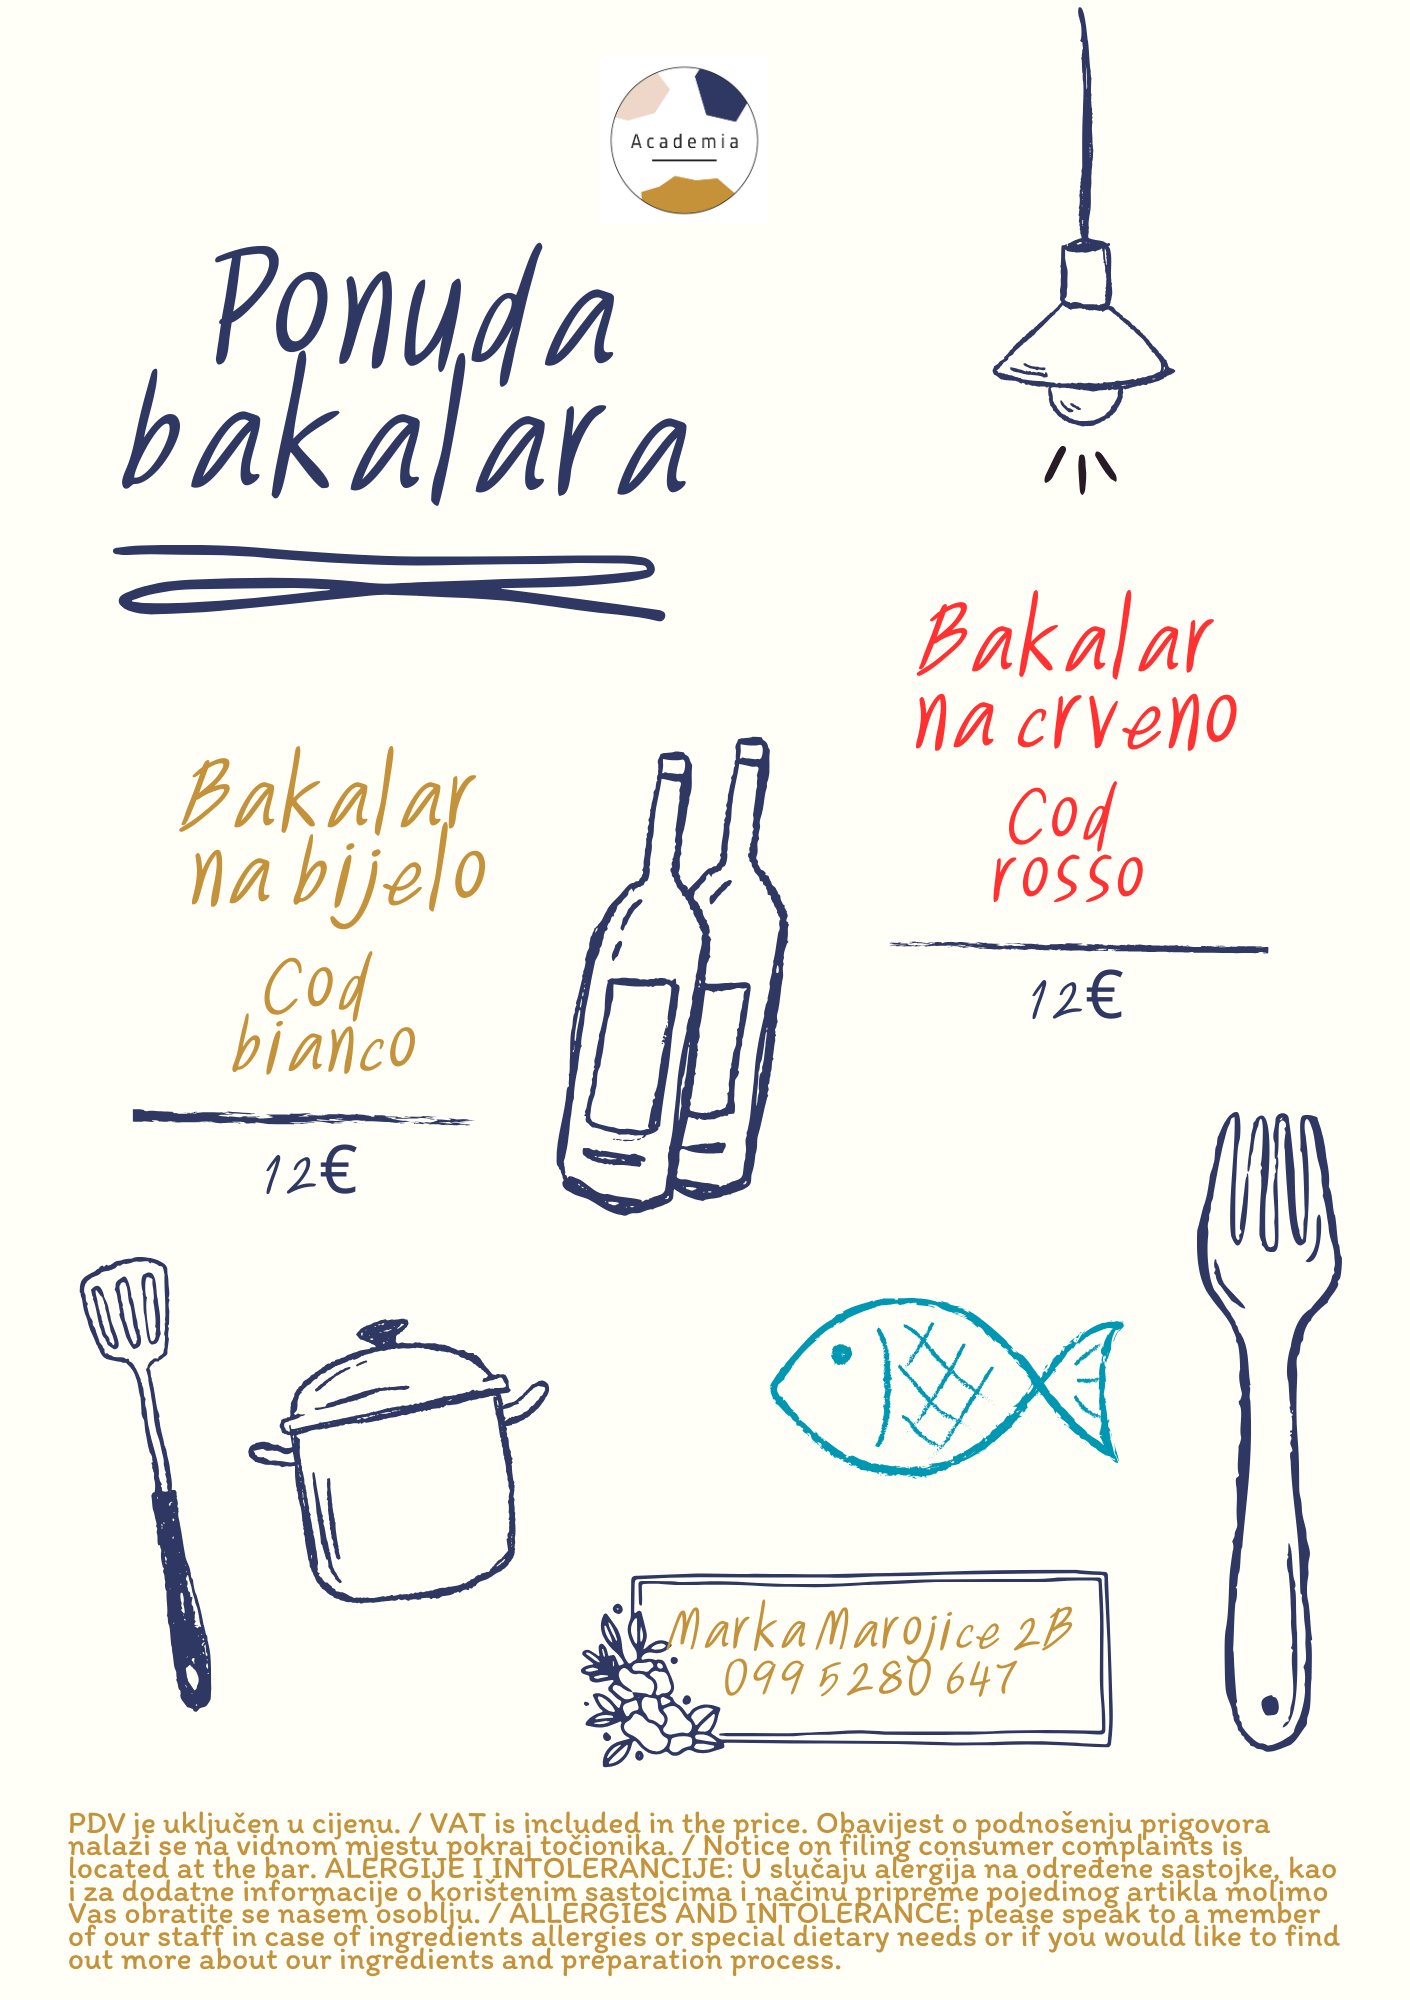 Academia
Ponuda
bakalara
Bakalar
na bijelo
Cod
bianco
12€
Bakalar
na crveno
Cod
rosso
12€
Marka Marojice 2B
099 5280 647
PDV je uključen u cijenu. / VAT is included in the price. Obavijest o podnošenju prigovora
nalazi se na vidnom mjestu pokraj točionika. / Notice on filing consumer complaints is
located at the bar. ALERGIJE I INTOLERANCIJE: U slučaju alergija na određene sastojke, kao
i za dodatne informacije o korištenim sastojcima i načinu pripreme pojedinog artikla molimo
Vas obratite se našem osoblju. / ALLERGIES AND INTOLERANCE: please speak to a member
of our staff in case of ingredients allergies or special dietary needs or if you would like to find
out more about our ingredients and preparation process.